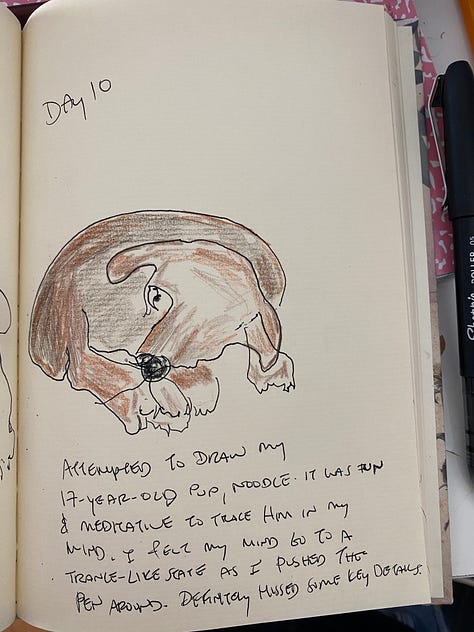 Day 10
ATTEMPTED TO DRAW MY
17-YEAR-OLD PUP, NOODLE. IT WAS FUN
& MEDITATIVE TO TRACE HIM IN MY
MIND. I FELT MY MIND GO TO A
TRANCE-LIKE STATE AS I PUSHED THE
PEN AROUND. DEFINITELY MISSED SOME KEY DETAILS.
Sharpie ROLLER 0.5